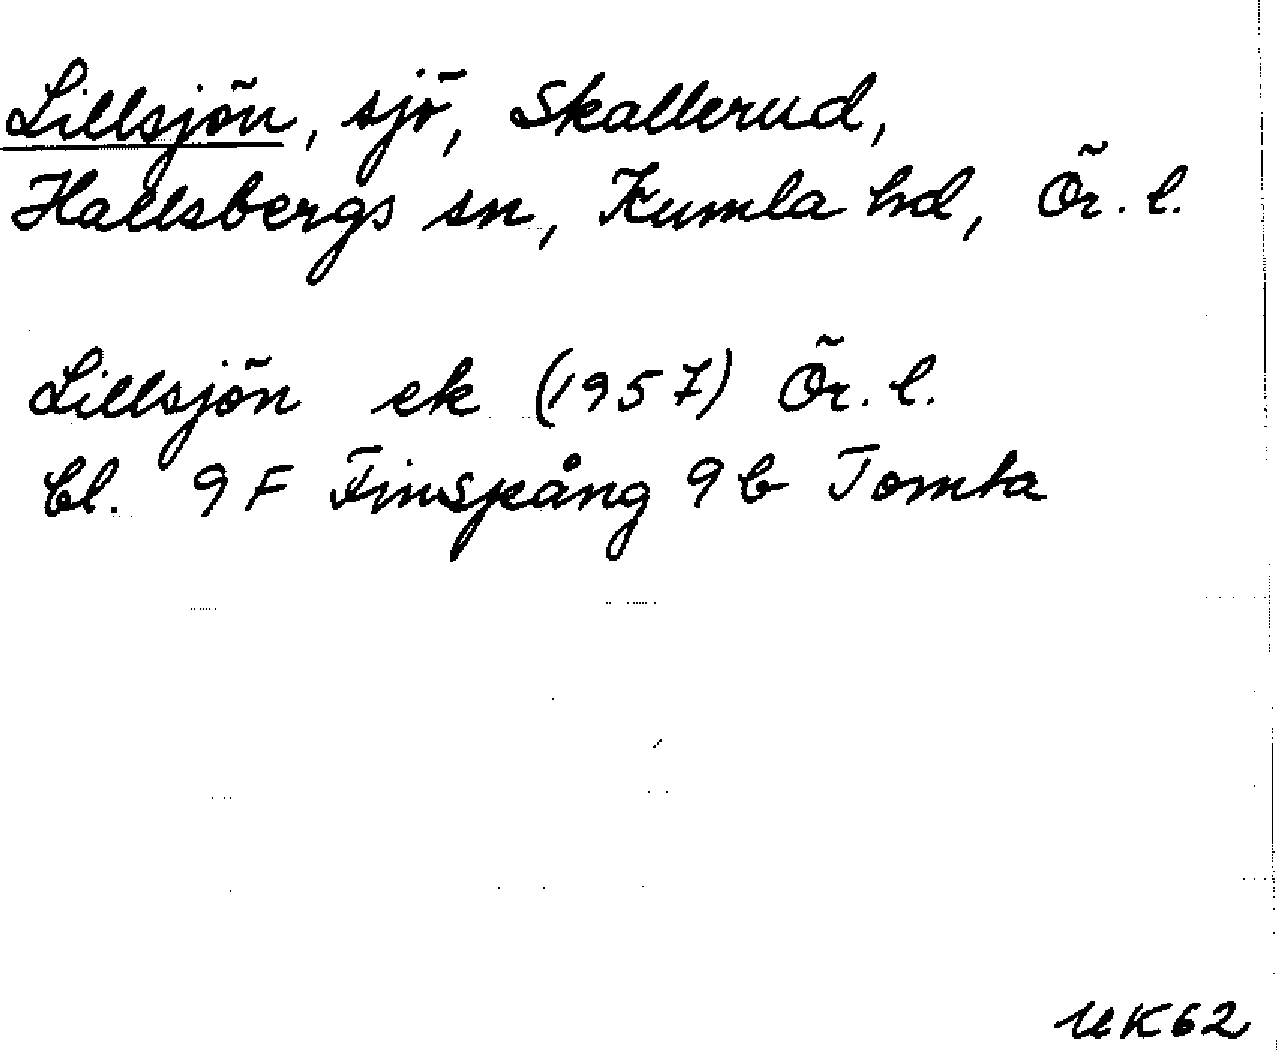 Lillsjön, sjö, Skallerud,
Hallsbergs sn, Kumla hd, Ör. l.
Lillsjön ek (1957) Ör. l.
bl. 9 F Finspång 9 b Tomta
UK62